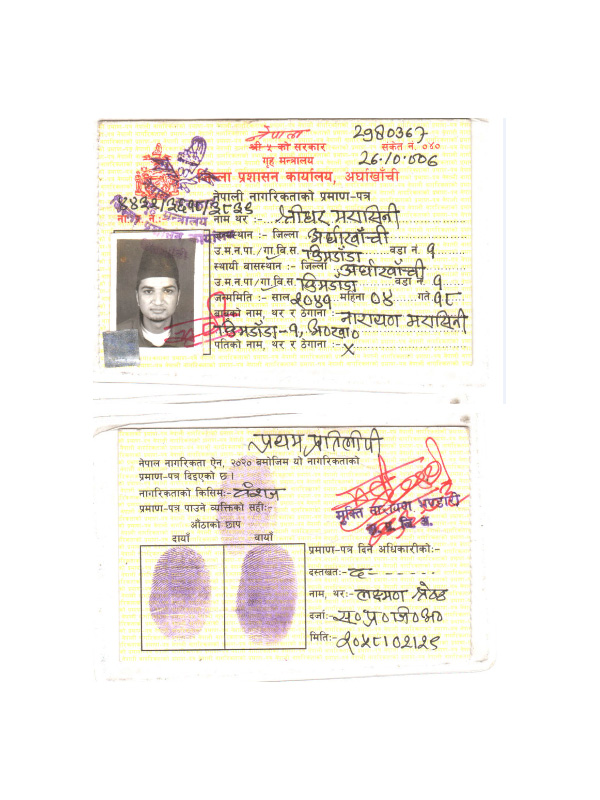 नेपाल
2980367
श्री ५ को सरकार
संकेत नं. ०४०
गृह मन्त्रालय
26.10.006
जिल्ला प्रशासन कार्यालय, अर्घाखाँची
नेपाली नागरिकताको प्रमाण-पत्र
ना.प्र.नं.
नाम थर :- श्रीधर मरासिनी
जन्मस्थान :- जिल्ला अर्घाखाँची
उ.म.न.पा./गा.वि.स. ठिमडाँडा वडा नं. १
स्थायी बासस्थान :- जिल्ला अर्घाखाँची
उ.म.न.पा./गा.वि.स. ठिमडाँडा वडा नं. १
जन्ममिति :- साल २०४१ महिना ०४ गते १८
बाबुको नाम, थर र ठेगाना :- नारायण मरासिनी
ठिमडाँडा-१, अ०खा०
पतिको नाम, थर र ठेगाना :- x
प्रथम प्रतिलीपी
नेपाल नागरिकता ऐन, २०२० बमोजिम यो नागरिकताको
प्रमाण-पत्र दिइएको छ ।
नागरिकताको किसिम:- वंशज
प्रमाण-पत्र पाउने व्यक्तिको सही:-
औंठाको छाप
दायाँ बायाँ
मुक्ति नारायण भण्डारी
प्रमाण-पत्र दिने अधिकारीको:-
दस्तखत:- द------
नाम, थर:- लक्ष्मण श्रेष्ठ
दर्जा:- स०प्र०जि०अ०
मिति:- २०५८।०२।२९